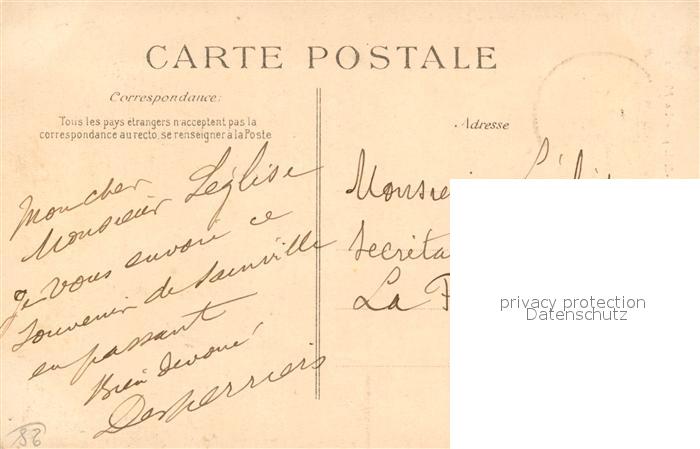 CARTE POSTALE
Correspondance:
Tous les pays étrangers n'acceptent pas la
correspondance au recto, se renseigner à la Poste
Adresse
Mon cher
Monsieur Léglise
je vous envoie ce
souvenir de Sainville
en passant
Bien dévoué
Desperriers
Monsie
Secréta
La
privacy protection
Datenschutz